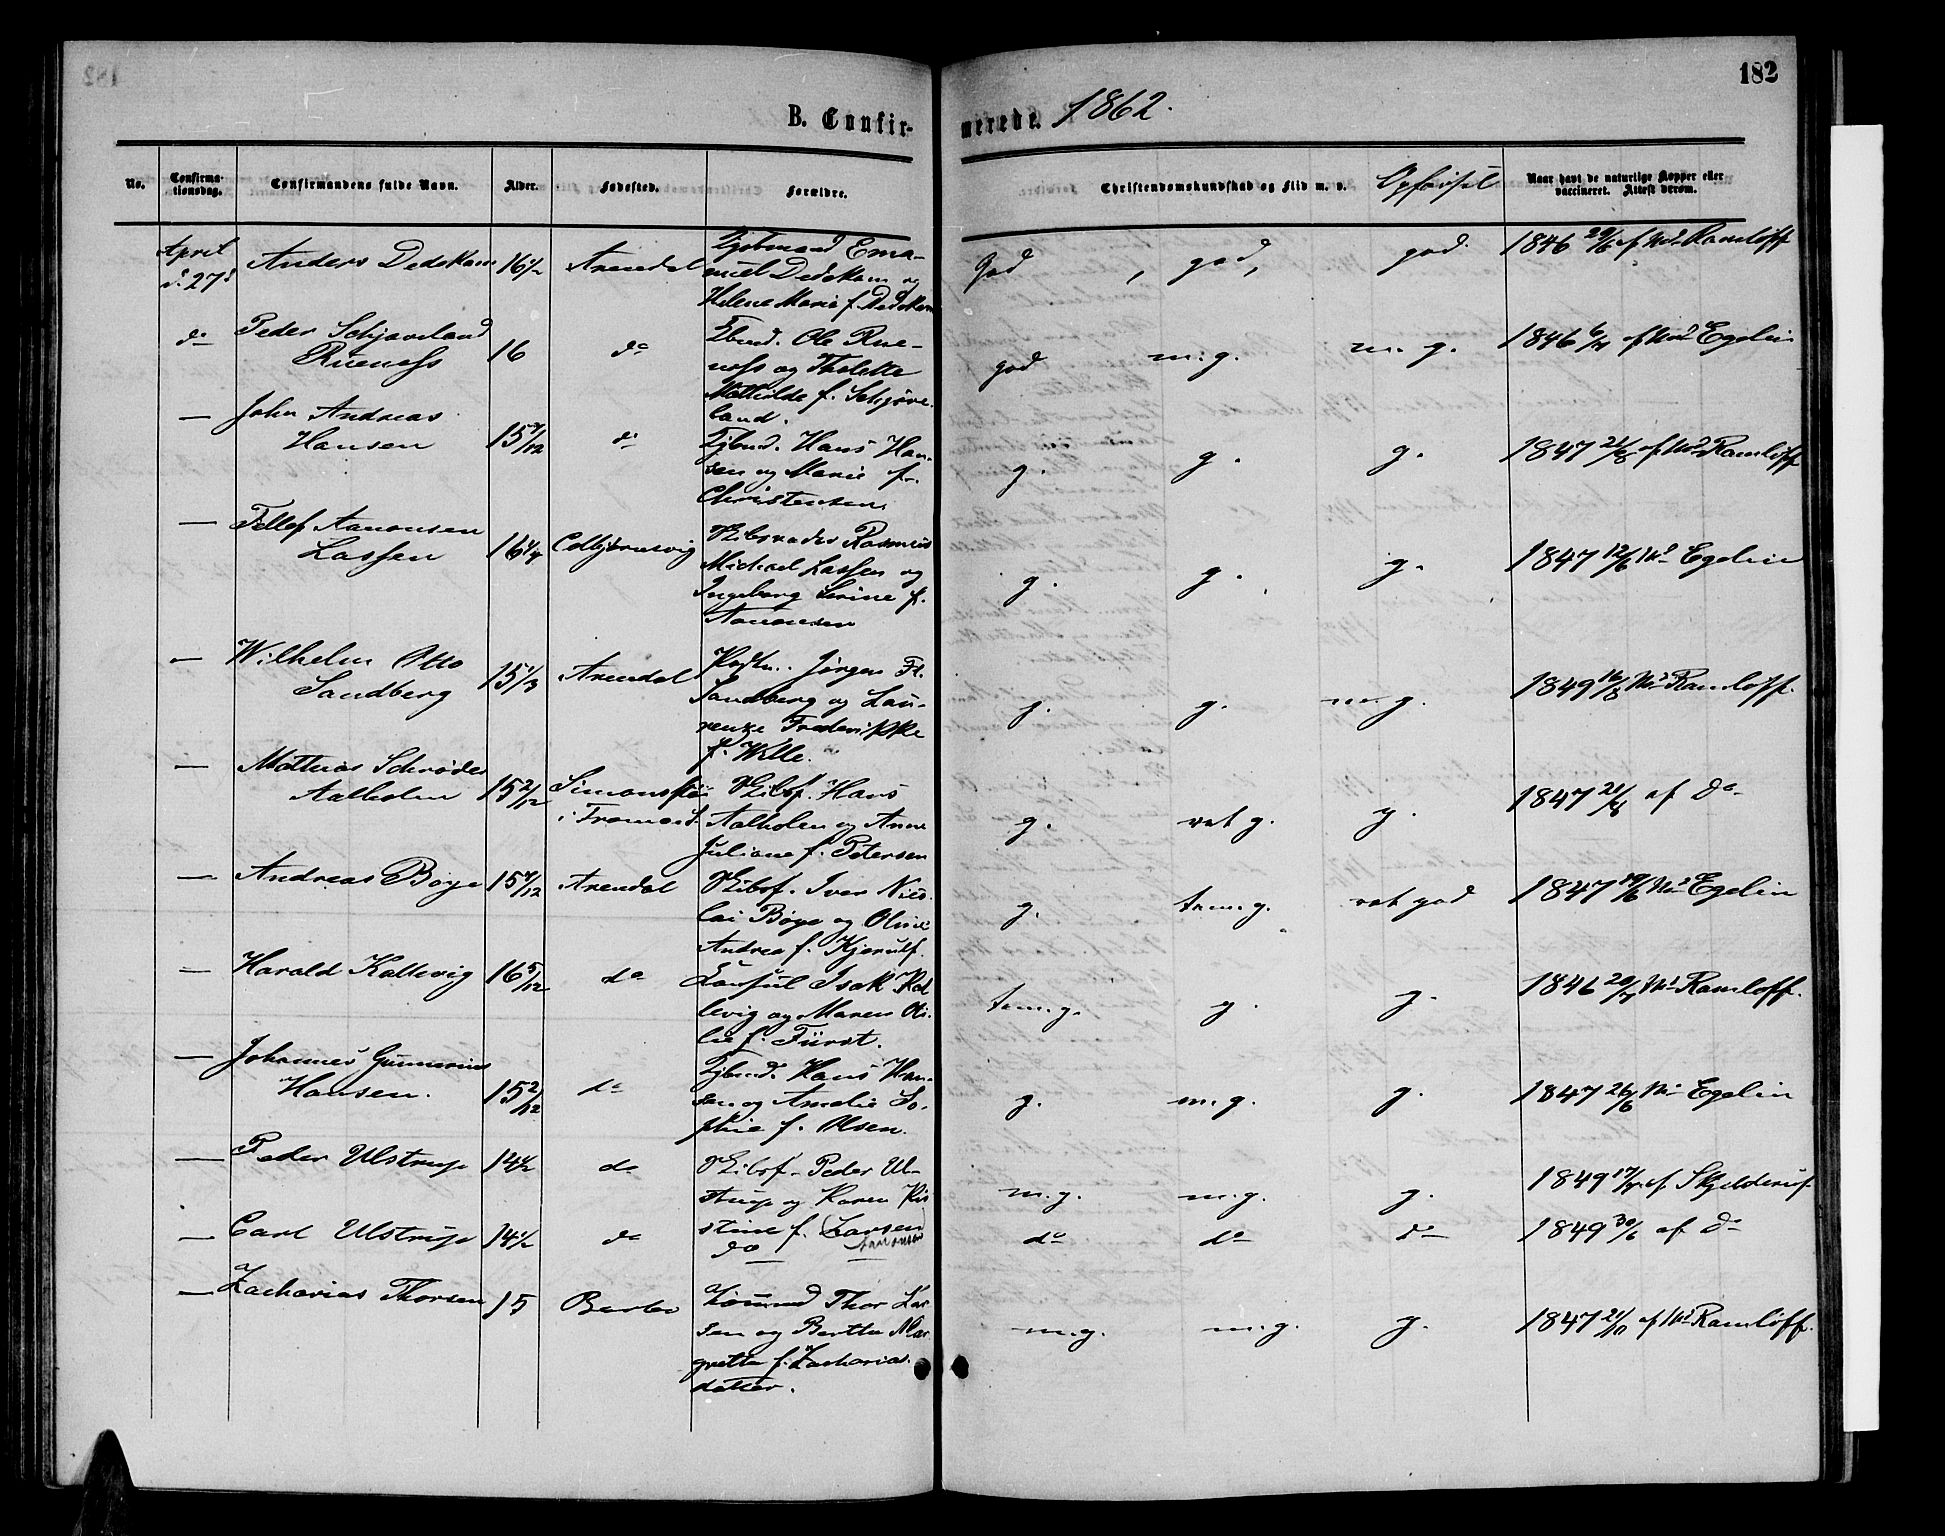 182
B. Confir-
merede. 1862.
No.
Confirma-
tionsdag.
Confirmandens fulde Navn.
Alder.
Fødested.
Forældre.
Christendomskundskab og Flid m. v.
Opførsel
Naar havt de naturlige Kopper eller
vaccineret. Attest derom.
April
d. 27d
Anders Dedekam
16 1/2
Arendal
Ema-
nuel Dedekam og
Helene Marie f. Dedekam
God, god, god.
1846 20/6 af Md Ramløff
do
Peder Schjøveland
Rueness
16
do
Ole Rue-
ness og Tholekke
Mathilde f. Schjøve-
land.
god m.g. m.g.
1846 6/7 af Md Egelin
—
John Andreas
Hansen
15 7/12
do
Hans Han-
sen og Marie f.
Christensen
g. g. g.
1847 21/8 af Md Ramløff
—
Tellef Aanonsen
Lassen
16 1/4
Colbjørnsvig
Rasmus
Michael Lassen og
Ingeborg Serine f.
Aanonsen
g. g. g.
1847 12/6 Md Egelin
—
Wilhelm Otto
Sandberg
15 1/3
Arendal
Jørgen Fl.
Sandberg og Lau-
renze Frederikke
f. Wille.
g. g. m.g.
1849 16/8 Md Ramløff.
—
Mathias Schrøder
Aalholm
15 2/12
i Tromøe
Skibsf. Hans
Aalholm og Anne
Juliane f. Petersen
g. vel g. g.
1847 21/8 af do
—
Andreas Bøye
15 7/12
Arendal
Skibsf. Iver Nico-
lai Bøye og Oline
Andrea f. Kjerulf.
g. tem. g. vel god
1847 19/6 Md Egelin
—
Harald Kallevig
16 5/12
do
Consul Isak Kal-
levig og Maren Ce-
lie f. Fürst.
tem. g. g. g.
1846 20/7 Md Ramløff.
—
Johannes Gunnerius
Hansen.
15 2/12
do
Hans Han-
sen og Amalie So-
phie f. Olsen.
g. m.g. g.
1847 26/6 Md Egelin
—
Peder Ulstrup
14 1/2
do
Skibsf. Peder Ul-
strup og Karen Kri-
stine f. (Larsen)
Aanonsen
m.g. m.g. g.
1849 17/7 af Skjelderup.
—
Carl Ulstrup
14 1/2
do
do
do do do
1849 30/6 af do
—
Zacharias Thorsen
15
Barbo
Thor Lar-
sen og Berthe Mar-
grethe f. Zacharias-
datter.
m.g. m.g. g.
1847 21/10 af Md Ramløff.